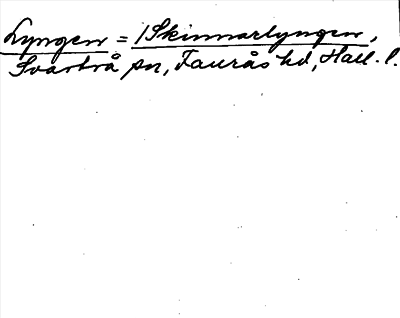 Lyngen = /Skinnarlyngen,
Svartrå sn, Faurås hd, Hall. l.